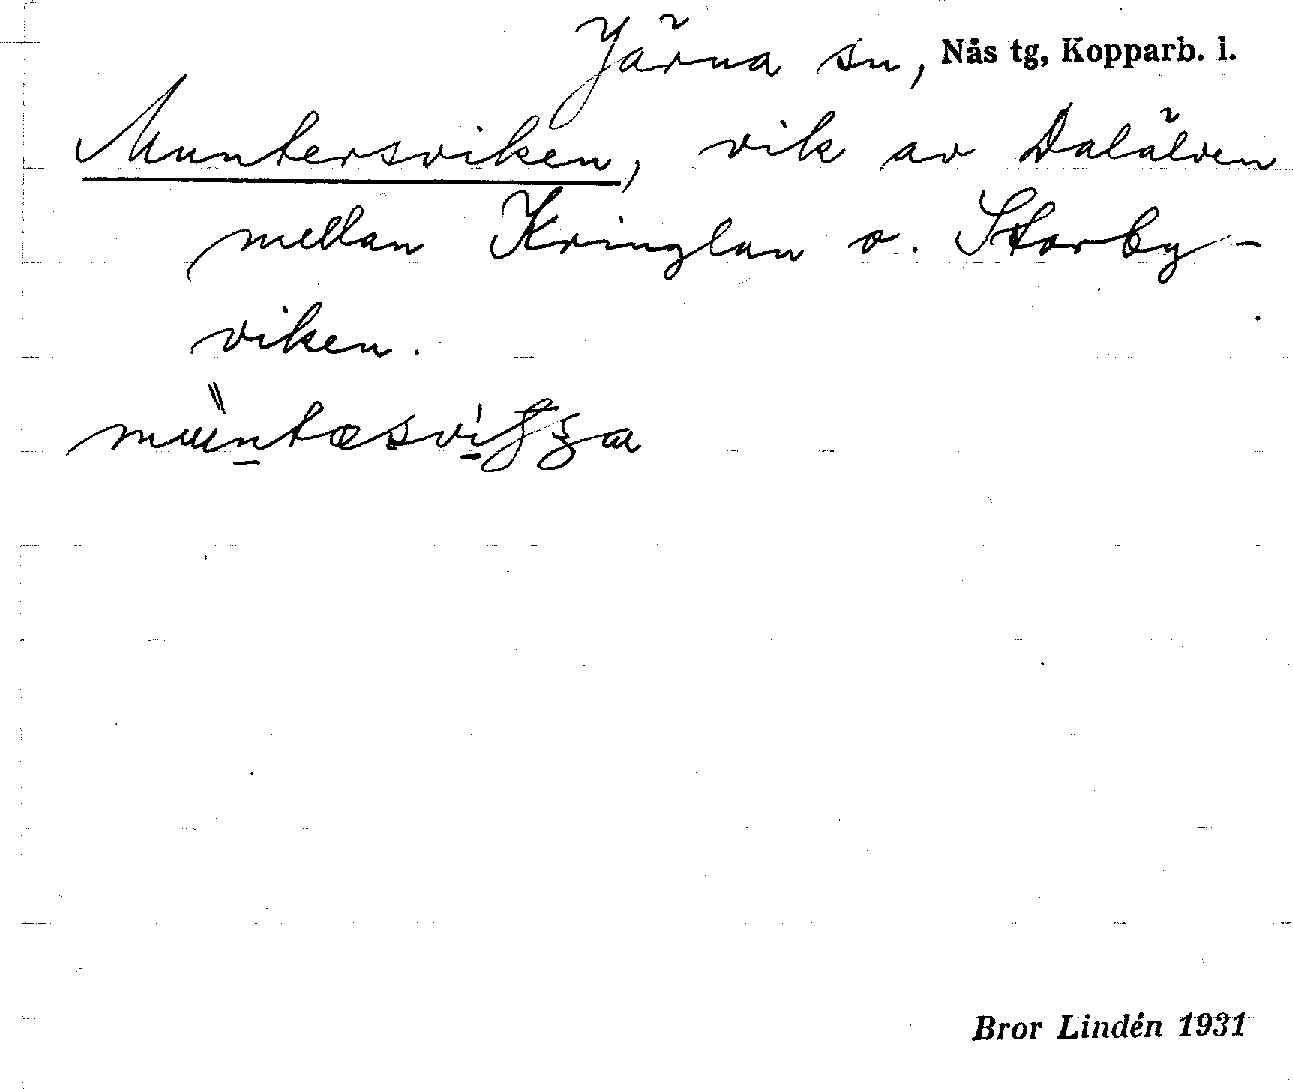 Järna sn, Nås tg, Kopparb. l.
Muntersviken, vik av Dalälven
mellan Kringlan o. Storby-
viken.
Bror Lindén 1931